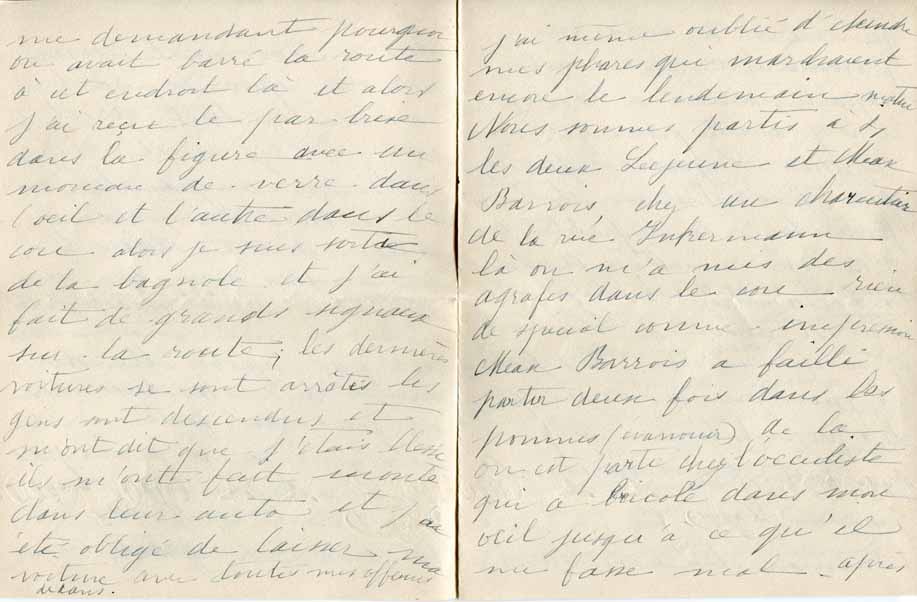 me demandant pourquoi
on avait barré la route
à cet endroit là et alors
j'ai reçu le par-brise
dans la figure avec un
morceau de verre dans
l'oeil et l'autre dans le
cou alors je suis sorti
de la bagnole et j'ai
fait de grands signaux
sur la route, les dernières
voitures se sont arrêtés les
gens sont descendus et
m'ont dit que j'étais blessé
ils m'ont fait monté
dans leur auto et j'ai
été obligé de laisser ma
voiture avec toutes mes affaires
dedans.
j'ai même oublié d'éteindre
mes phares qui marchaient
encore le lendemain matin
Nous sommes partis à
les deux Lejeune et Max
Barrois chez un charcutier
de la rue Inkermann
là on m'a mis des
agrafes dans le cou rien
de spécial comme impression
Max Barrois a failli
partir deux fois dans les
pommes (évanouir) de la
on est parti chez l'occuliste
qui a bricolé dans mon
oeil jusqu'à ce qu'il
me fasse mal - après